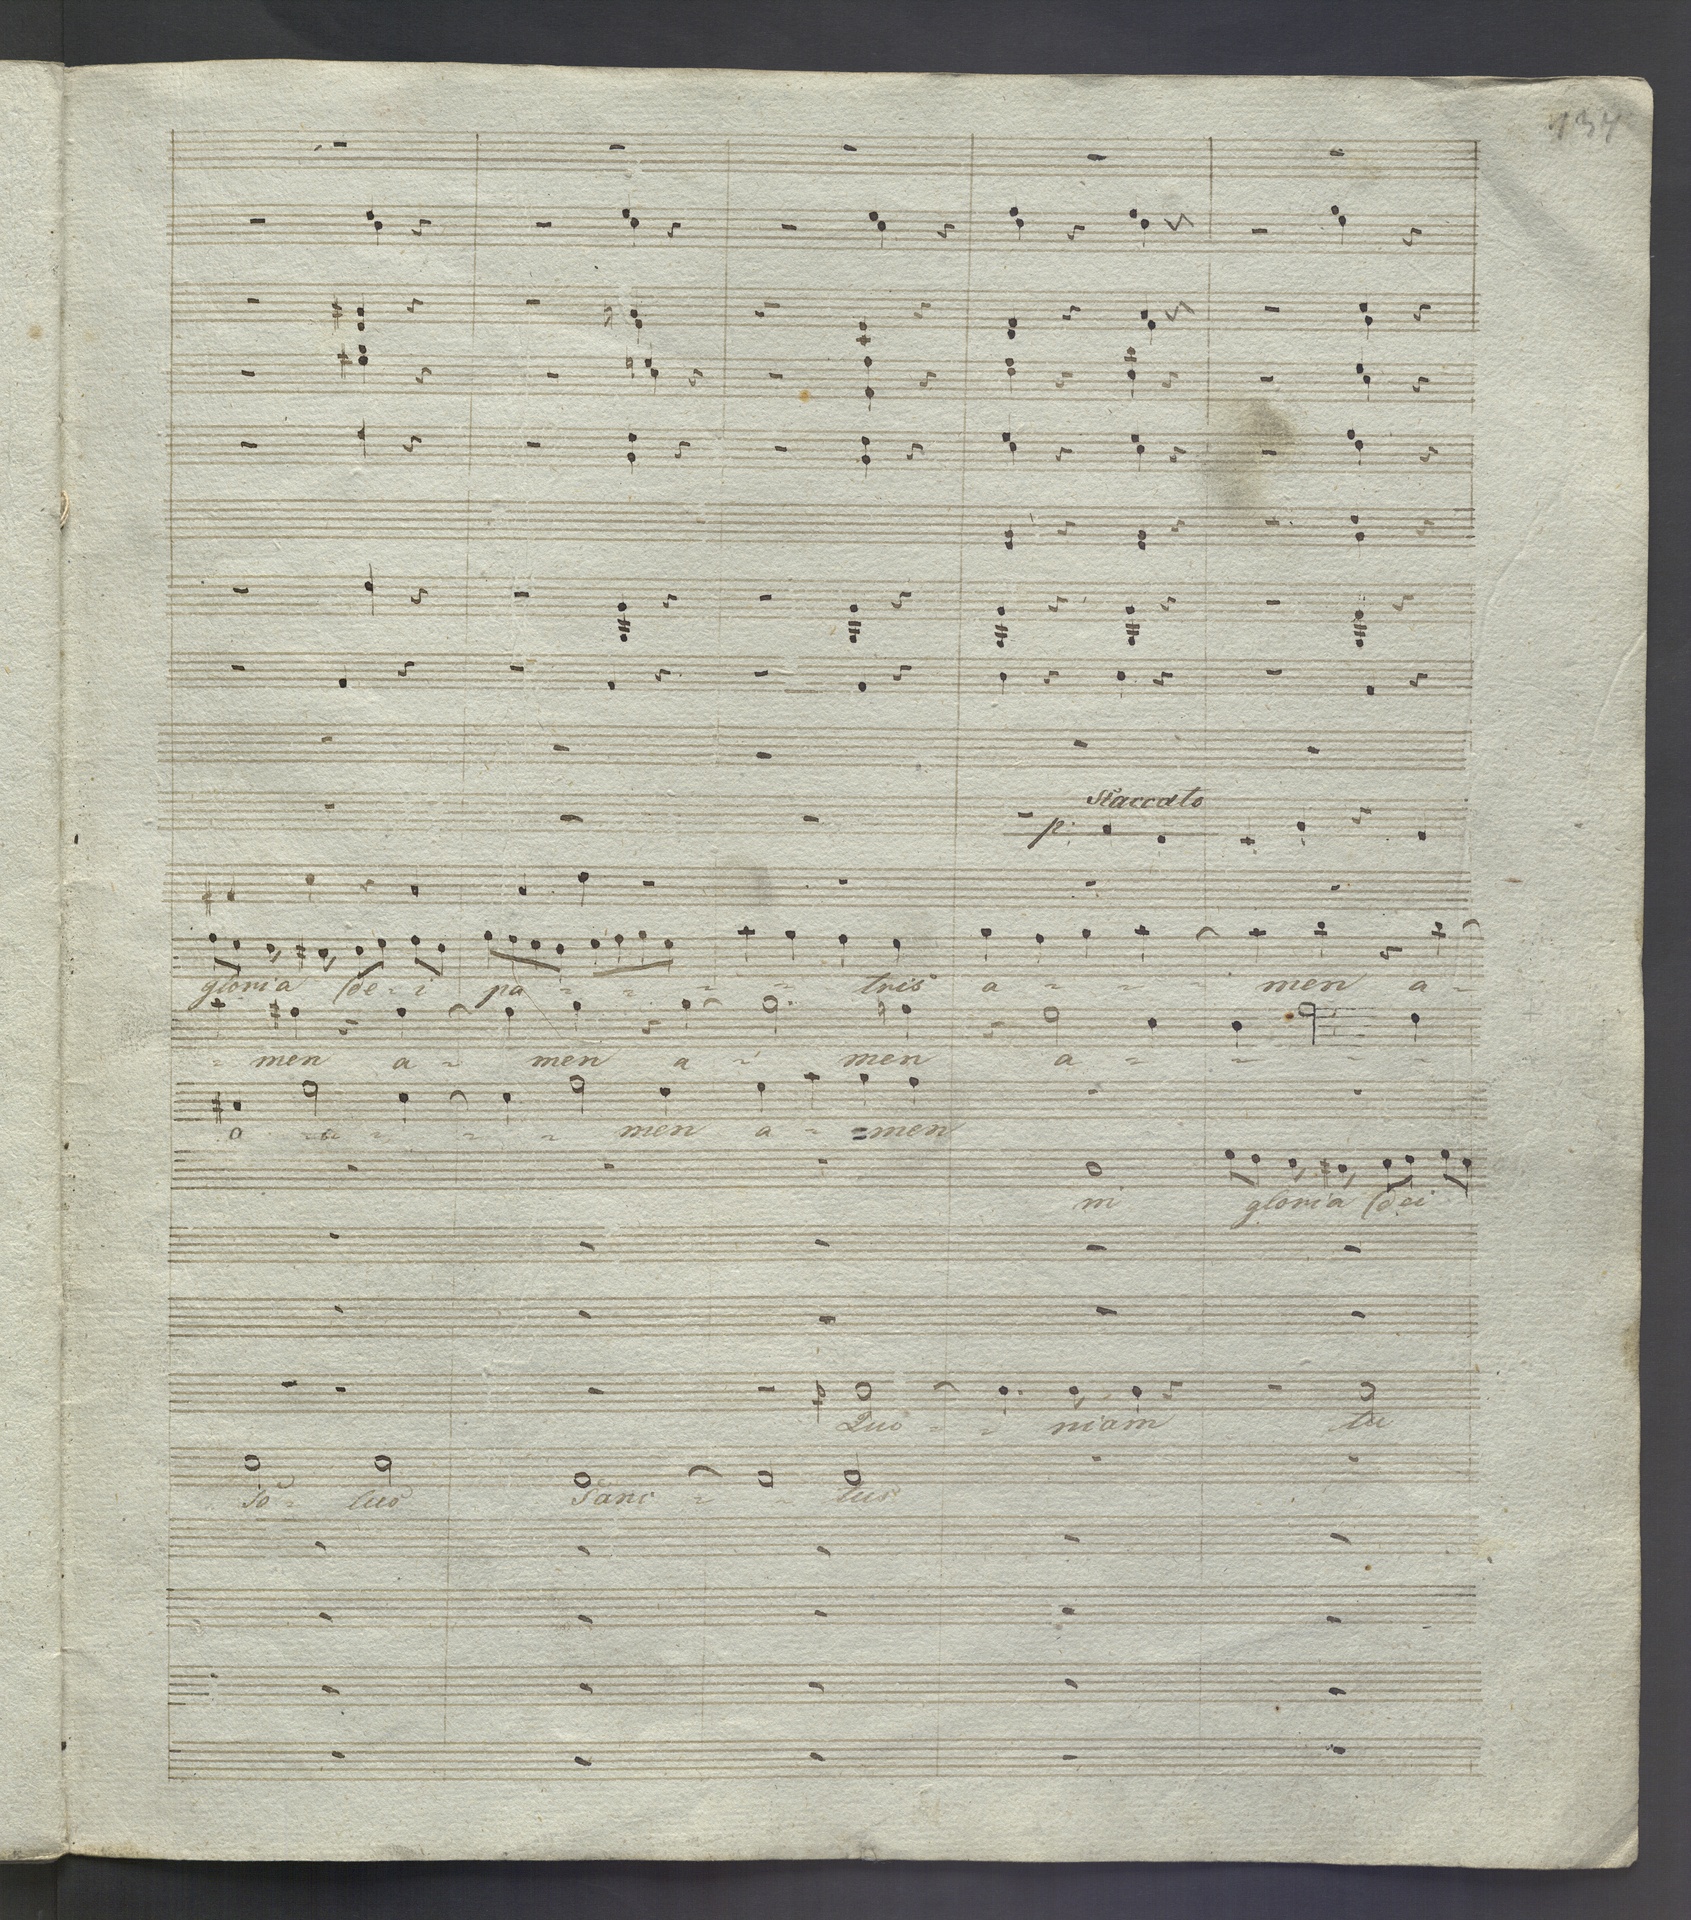 134
Staccato
p:
gloria de - i pa - - - - - tris a - - - men a -
- men a - men a - men a - - - -
a - a - - - men a - = men
ni gloria dei
Quo - - niam tu
So - lus Sanc - - tus